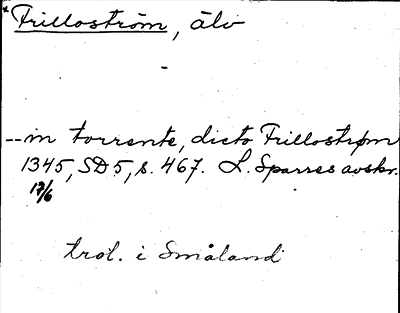 *Frilloström, älv
-- in torrente, dicto Frillostrøm
1345, SD 5, s. 467. L. Sparres avskr.
17/6
trol. i Småland